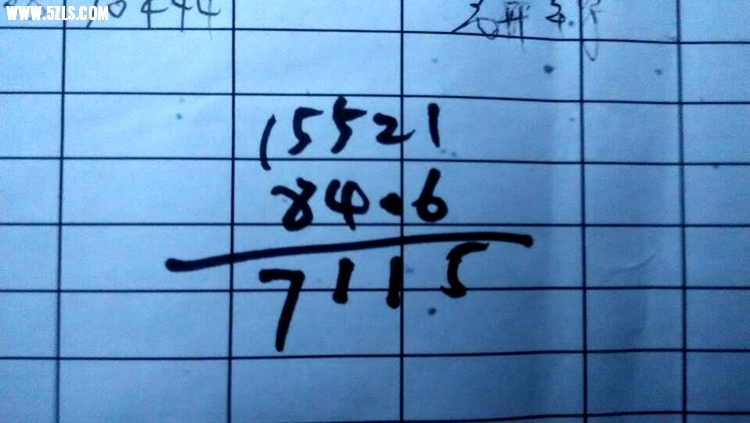 WWW.5ZLS.COM
15521
8406
7115